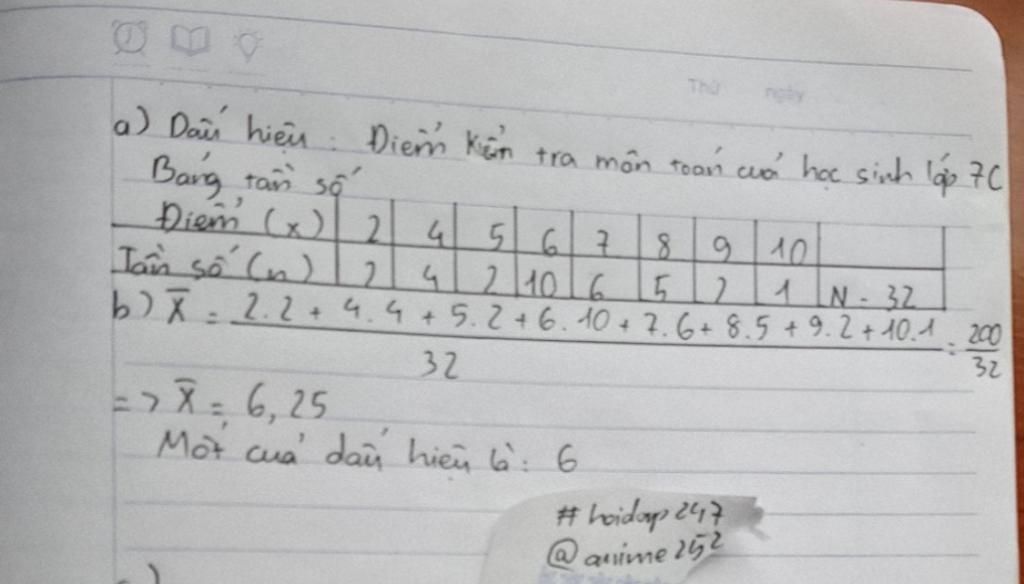 Thứ ngày
a) Dấu hiệu : Điểm kiểm tra môn toán của học sinh lớp 7C
Bảng tần số
Điểm (x) 2 4 5 6 7 8 9 10
Tần số (n) 2 4 2 10 6 5 2 1 N = 32
b) X̄ = 2.2 + 4.4 + 5.2 + 6.10 + 7.6 + 8.5 + 9.2 + 10.1 = 200
32 32
=> X̄ = 6,25
Mốt của dấu hiệu là : 6
# hoidap247
@anime252